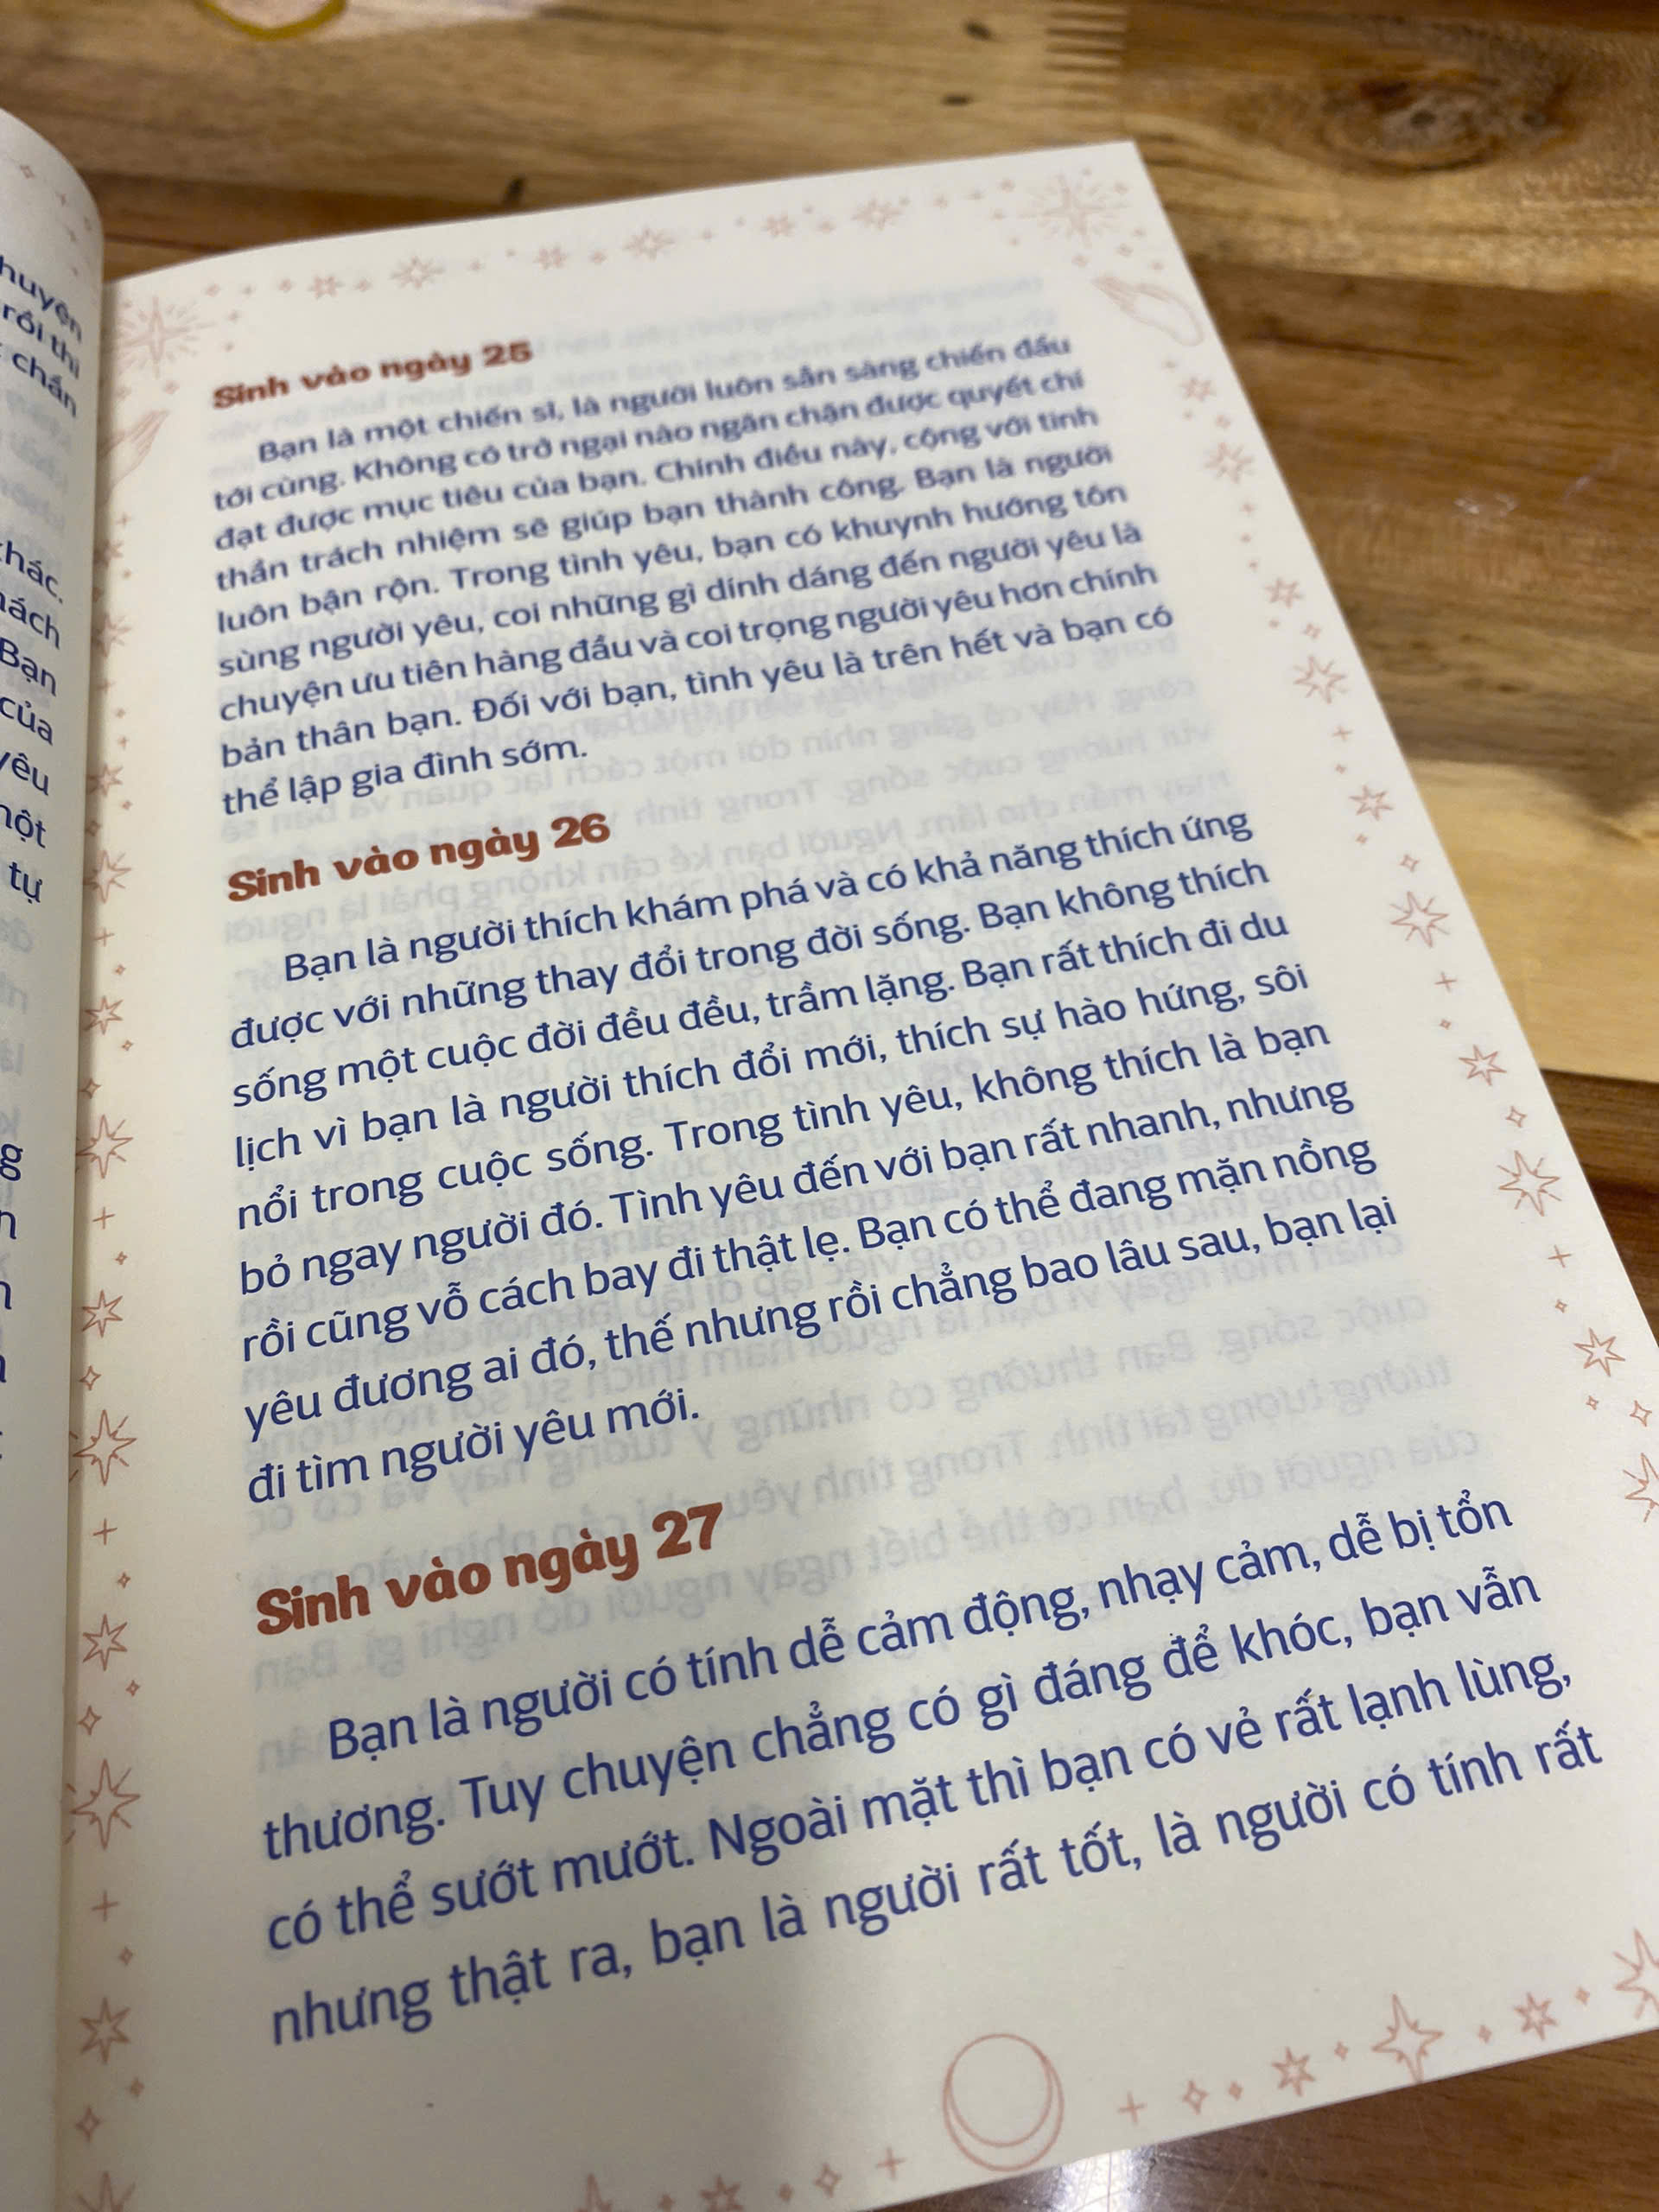 huyện
rồi thì
chắn
khác.
Bạn
của
yêu
một
tự
Sinh vào ngày 25
Bạn là một chiến sĩ, là người luôn sẵn sàng chiến đấu
tới cùng. Không có trở ngại nào ngăn chặn được quyết chí
đạt được mục tiêu của bạn. Chính điều này, cộng với tinh
thần trách nhiệm sẽ giúp bạn thành công. Bạn là người
luôn bận rộn. Trong tình yêu, bạn có khuynh hướng tôn
sùng người yêu, coi những gì dính dáng đến người yêu là
chuyện ưu tiên hàng đầu và coi trọng người yêu hơn chính
bản thân bạn. Đối với bạn, tình yêu là trên hết và bạn có
thể lập gia đình sớm.
Sinh vào ngày 26
Bạn là người thích khám phá và có khả năng thích ứng
được với những thay đổi trong đời sống. Bạn không thích
sống một cuộc đời đều đều, trầm lặng. Bạn rất thích đi du
lịch vì bạn là người thích đổi mới, thích sự hào hứng, sôi
nổi trong cuộc sống. Trong tình yêu, không thích là bạn
bỏ ngay người đó. Tình yêu đến với bạn rất nhanh, nhưng
rồi cũng vỗ cách bay đi thật lẹ. Bạn có thể đang mặn nồng
yêu đương ai đó, thế nhưng rồi chẳng bao lâu sau, bạn lại
đi tìm người yêu mới.
Sinh vào ngày 27
Bạn là người có tính dễ cảm động, nhạy cảm, dễ bị tổn
thương. Tuy chuyện chẳng có gì đáng để khóc, bạn vẫn
có thể sướt mướt. Ngoài mặt thì bạn có vẻ rất lạnh lùng,
nhưng thật ra, bạn là người rất tốt, là người có tính rất